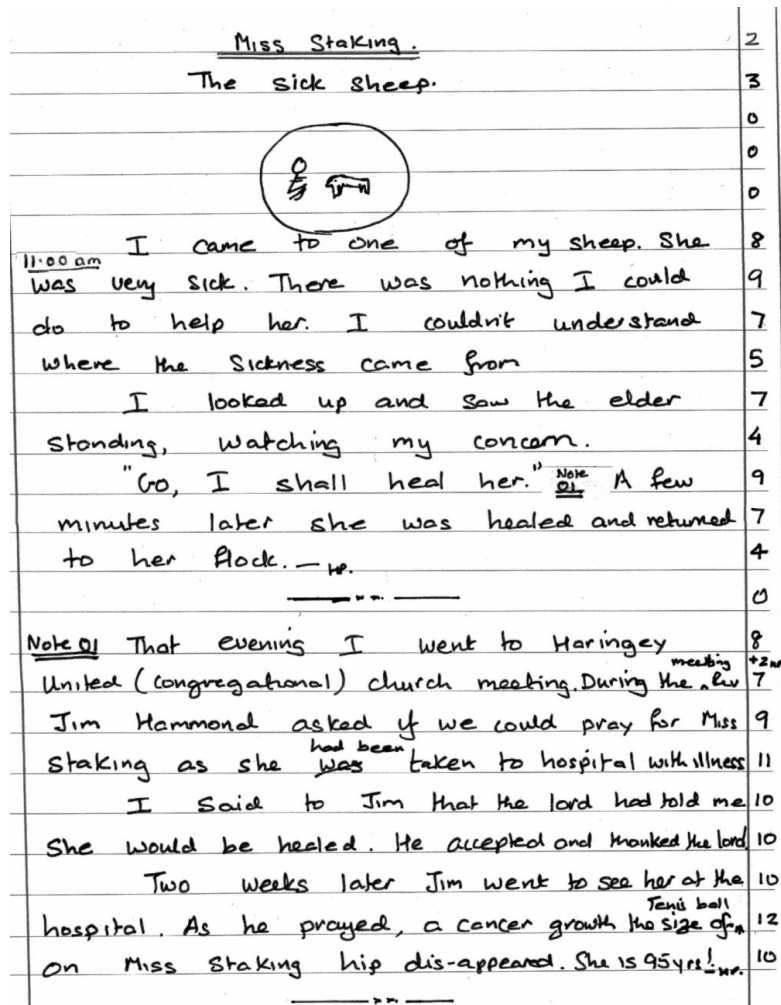 Miss Staking. 2
The sick sheep. 3
0
0
0
I came to one of my sheep. She 8
11.00 am
was very sick. There was nothing I could 9
do to help her. I couldn't understand 7
where the sickness came from 5
I looked up and saw the elder 7
standing, watching my concern. 4
"Go, I shall heal her." Note 01 A few 9
minutes later she was healed and returned 7
to her flock. — HP. 4
0
Note 01 That evening I went to Haringey 8
United (congregational) church meeting. During the meeting Rev 7 +2
Jim Hammond asked if we could pray for Miss 9
Staking as she was had been taken to hospital with illness 11
I said to Jim that the lord had told me 10
She would be healed. He accepted and thanked the lord. 10
Two weeks later Jim went to see her at the 10
hospital. As he prayed, a cancer growth the size of Tenis ball 12
on Miss Staking hip dis-appeared. She is 95yrs! HP. 10